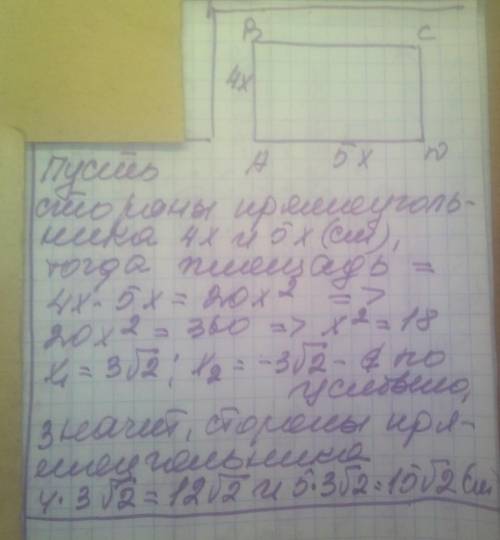 B C
4x
A 5x D
Пусть
стороны прямоуголь-
ника 4x и 5x (см),
тогда площадь =
4x · 5x = 20x² =>
20x² = 360 => x² = 18
x₁ = 3√2; x₂ = -3√2 - по
условию,
значит, стороны пря-
моугольника
4·3√2 = 12√2 и 5·3√2 = 15√2 см